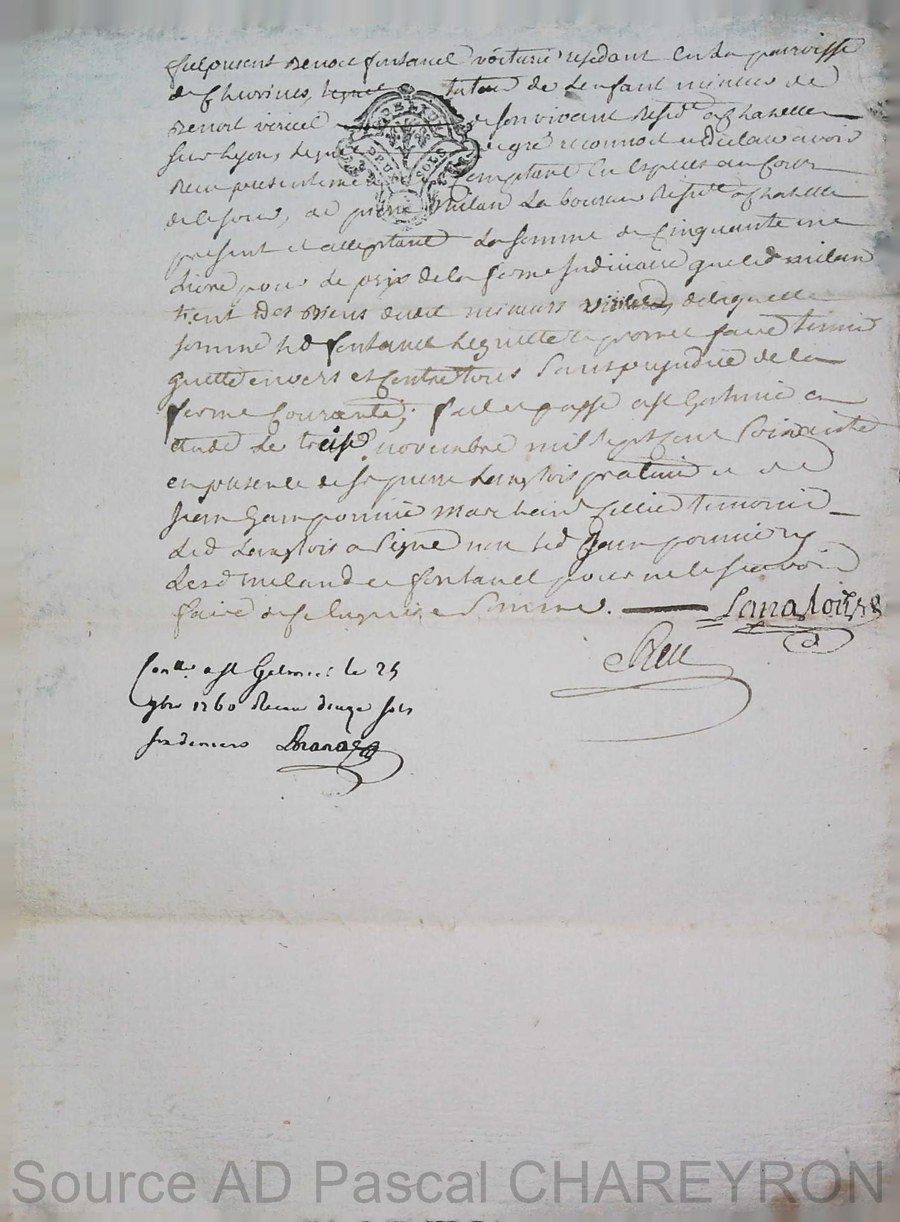 fut present Benoit fontanel voiturié residant en la parroisse
de Chevrines, tuteur de Lenfant mineur de
Benoit vivant de son vivant Resid. a Chazelle
sur Lyon, Lequel de gré reconnoit et declare avoir
Receu presentement comptant En Especes au Cour
de ce jour, de pierre Milan Laboureur Resid.t a Chazelle
present et acceptant La somme de Cinquante une
Livre pour Le prix de la ferme Judiciaire que led milan
tient des Biens dudit mineurs de laquelle
somme led fontanel Le quitte et promet faire tenir
quitte envers et Contre tous Sans prejudice de la
ferme Courante; fait et passé a St Galmié en
etude Le treise novembre mil sept Cent Soixante
en presence de Sr pierre Langlois praticien et de
Jean Gamponnié marchand temoins
Led Langlois a signé non led
Lesd Miland et fontanel pour ne le scavoir
faire de ce enquis et Sommé. Langlois
Con.lle a St Galmier le 25
9bre 1760 Receu douze sols
six deniers
DEUX SOLS
Source AD Pascal CHAREYRON